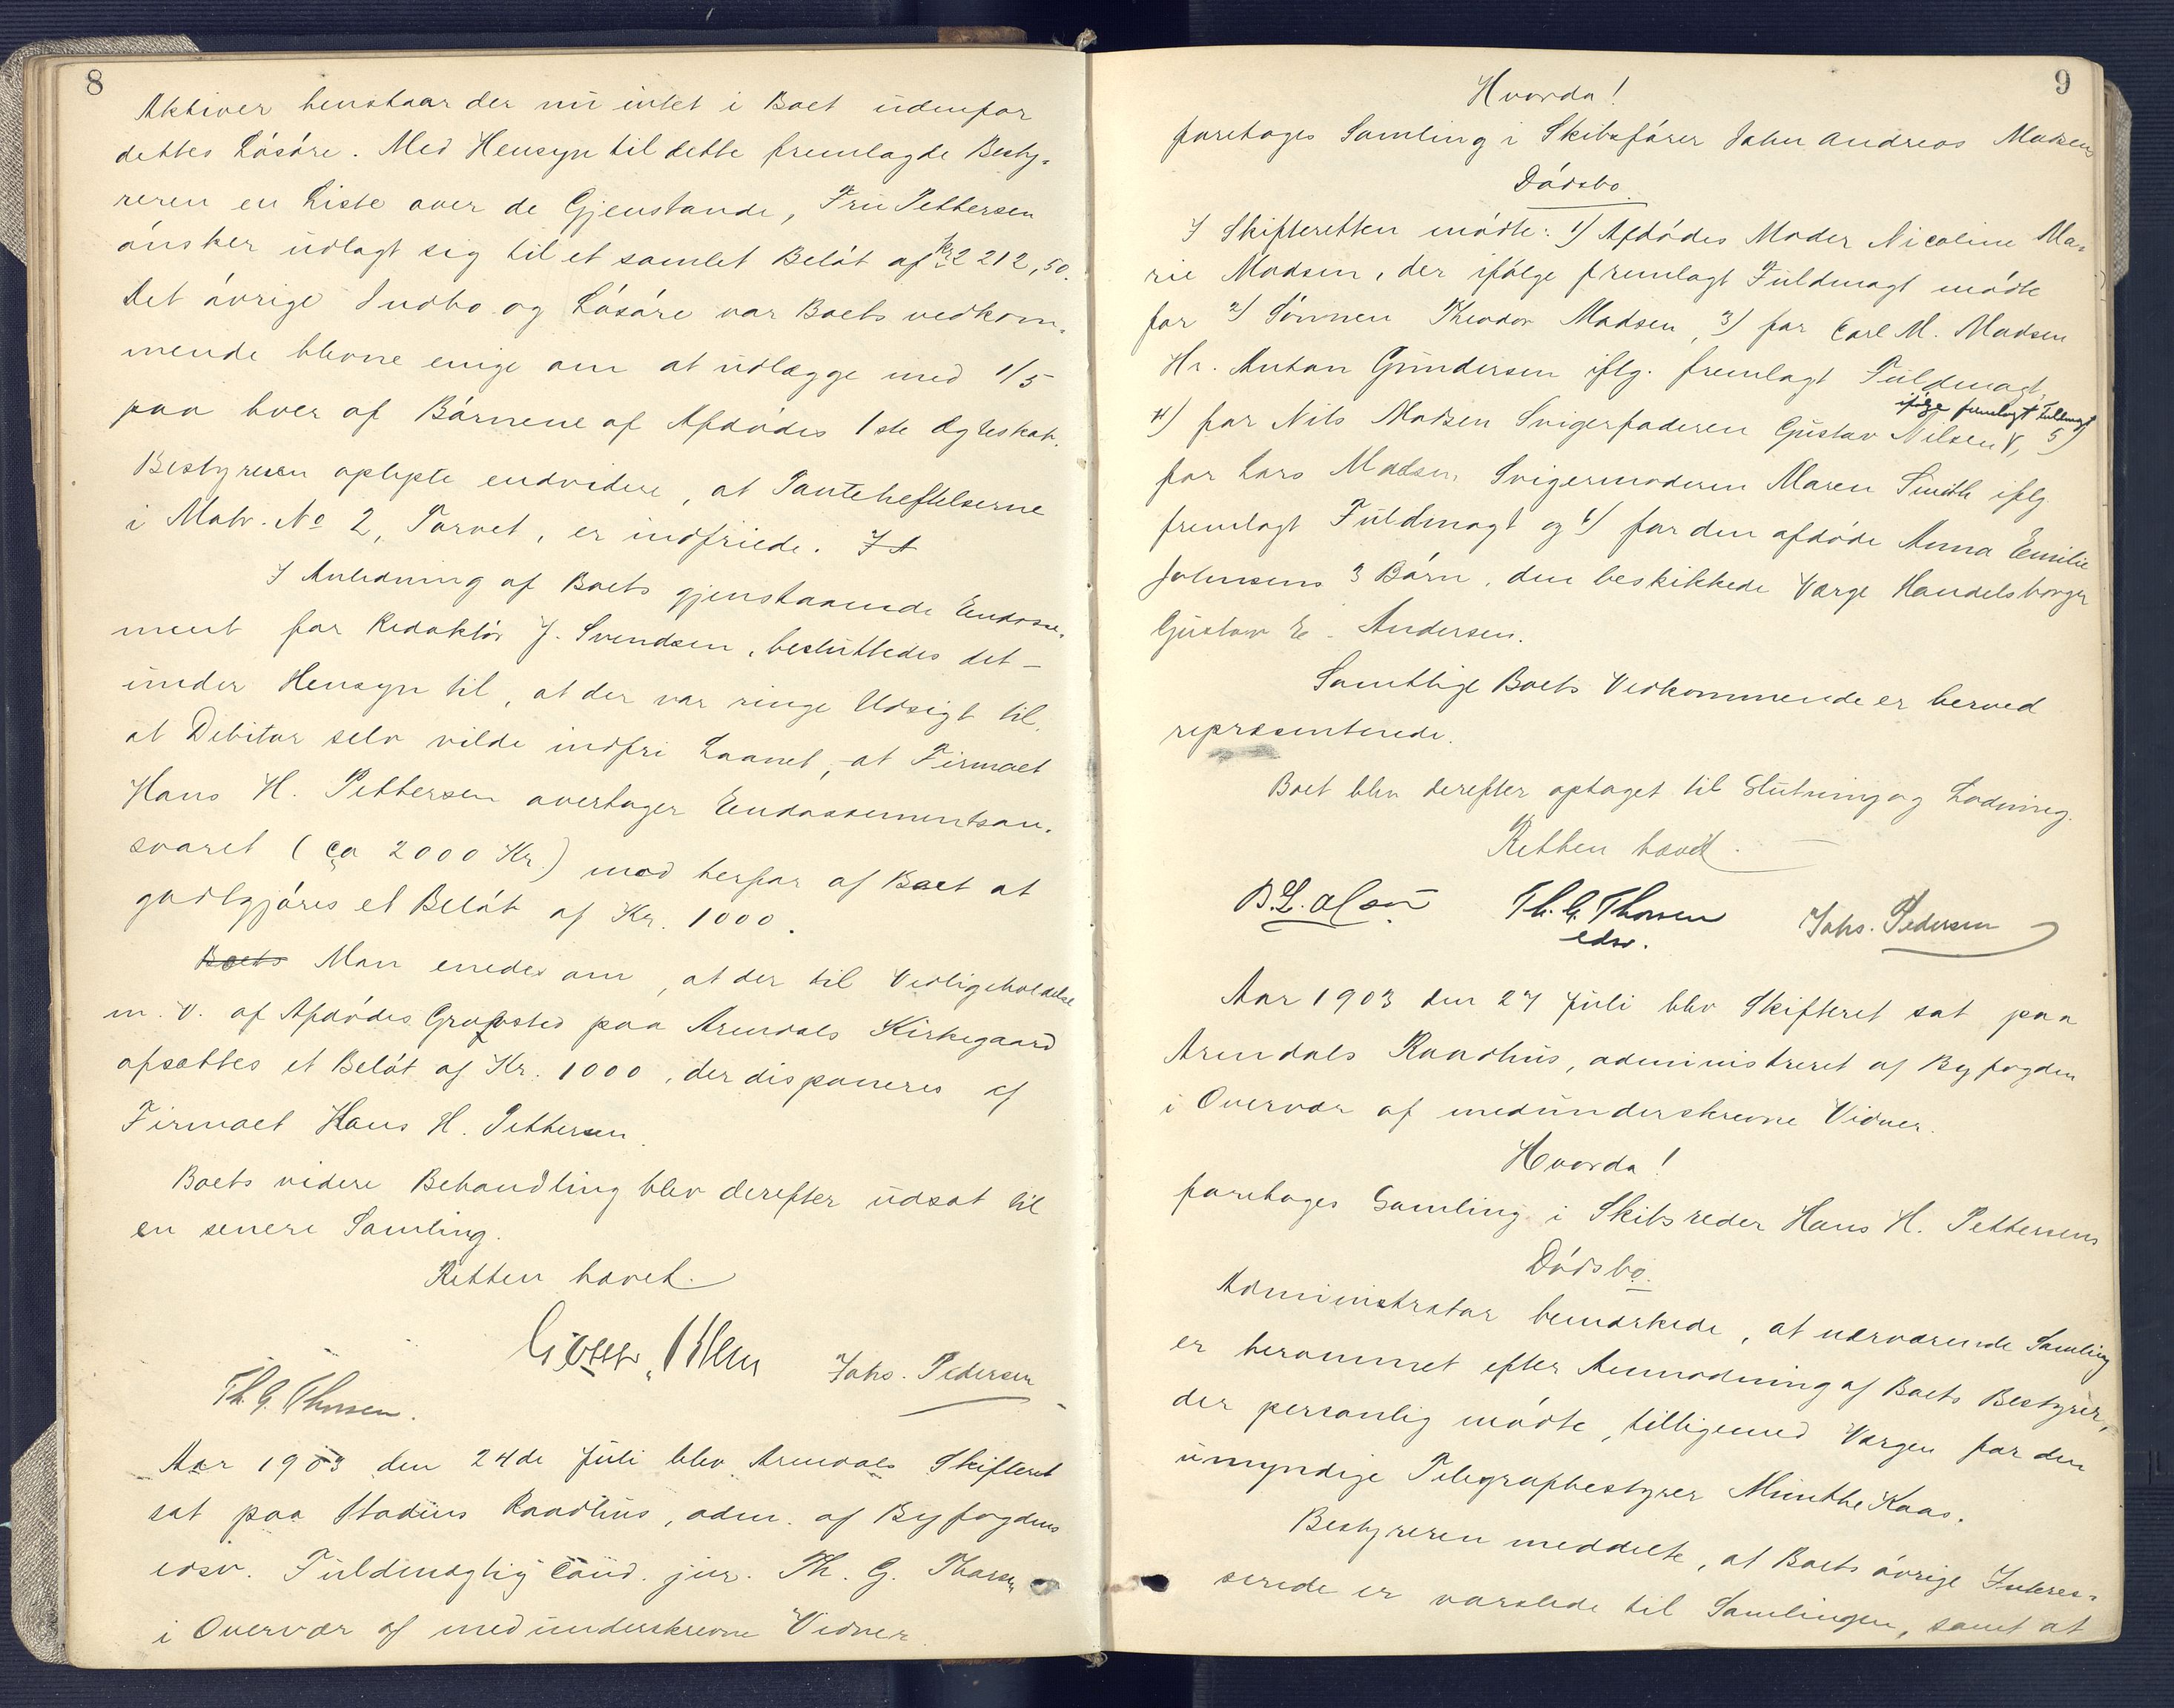 8
Aktiver henstaar der nu intet i Boet udenfor
dettes Løsøre. Med Hensyn til dette fremlagde Besty-
reren en Liste over de Gjenstande, Fru Pettersen
ønsker udlagt sig til et samlet Beløb af Kr 2 212,50.
Det øvrige Indbo og Løsøre var Boets vedkom-
mende blevne enige om at udlægge med 1/5
paa hver af Børnene af Afdødes 1ste Ægteskab.
Bestyreren oplyste endvidere, at Panteheftelserne
i Matr. No 2, Torvet, er indfriede.
I Anledning af Boets gjenstaaende Endosse-
ment for Redaktør J. Svendsen, besluttedes det –
under Hensyn til, at der var ringe Udsigt til,
at Debitor selv vilde indfri Laanet, – at Firmaet
Hans H. Pettersen overtager Endossementsan-
svaret (ca 2000 Kr.) mod herfor af Boet at
godtgjøres et Beløb af Kr. 1000.
Boets Man enedes om, at der til Vedligeholdelse
m. v. af Afdødes Gravsted paa Arendals Kirkegaard
afsættes et Beløb af Kr. 1000, der disponeres af
Firmaet Hans H. Pettersen.
Boets videre Behandling blev derefter udsat til
en senere Samling.
Retten hævet.
Th. G. Thorsen.
Johs. Pedersen
Aar 1903 den 24de Juli blev Arendals Skifteret
sat paa Stadens Raadhus, adm. af Byfogdens
edsv. Fuldmægtig Cand. jur. Th. G. Thorsen
i Overvær af medunderskrevne Vidner.
9
Hvorda!
foretoges Samling i Skibsfører John Andreas Madsens
Dødsbo.
I Skifteretten mødte: 1) Afdødes Moder Nicoline Ma-
rie Madsen, der ifølge fremlagt Fuldmagt mødte
for 2) Sønnen Theodor Madsen, 3) for Carl M. Madsen
Hr. Anton Gundersen iflg. fremlagt Fuldmagt,
ifølge fremlagt Fuldmagt
4) for Nils Madsen Svigerfaderen Gustav Nilsen, 5)
for Lars Madsen Svigermoderen Maren Smith iflg.
fremlagt Fuldmagt og 6) for den afdøde Anna Emilie
Johnsens 3 Børn, den beskikkede Værge Handelsborger
Gustav E. Andersen.
Samtlige Boets Vedkommende er herved
repræsenterede.
Boet blev derefter optaget til Slutning og Lodning.
Retten hævet.
B. L. Olsen
Th. G. Thorsen
edsv.
Johs. Pedersen
Aar 1903 den 27 Juli blev Skifteret sat paa
Arendals Raadhus, administreret af Byfogden
i Overvær af medunderskrevne Vidner.
Hvorda!
foretoges Samling i Skibsreder Hans H. Pettersens
Dødsbo.
Administrator bemærkede, at nærværende Samling
er berammet efter Anmodning af Boets Bestyrer,
der personlig mødte, tilligemed Værgen for den
umyndige Telegrafbestyrer Munthe Kaas.
Bestyreren meddelte, at Boets øvrige Interes-
serede er varslede til Samlingen, samt at